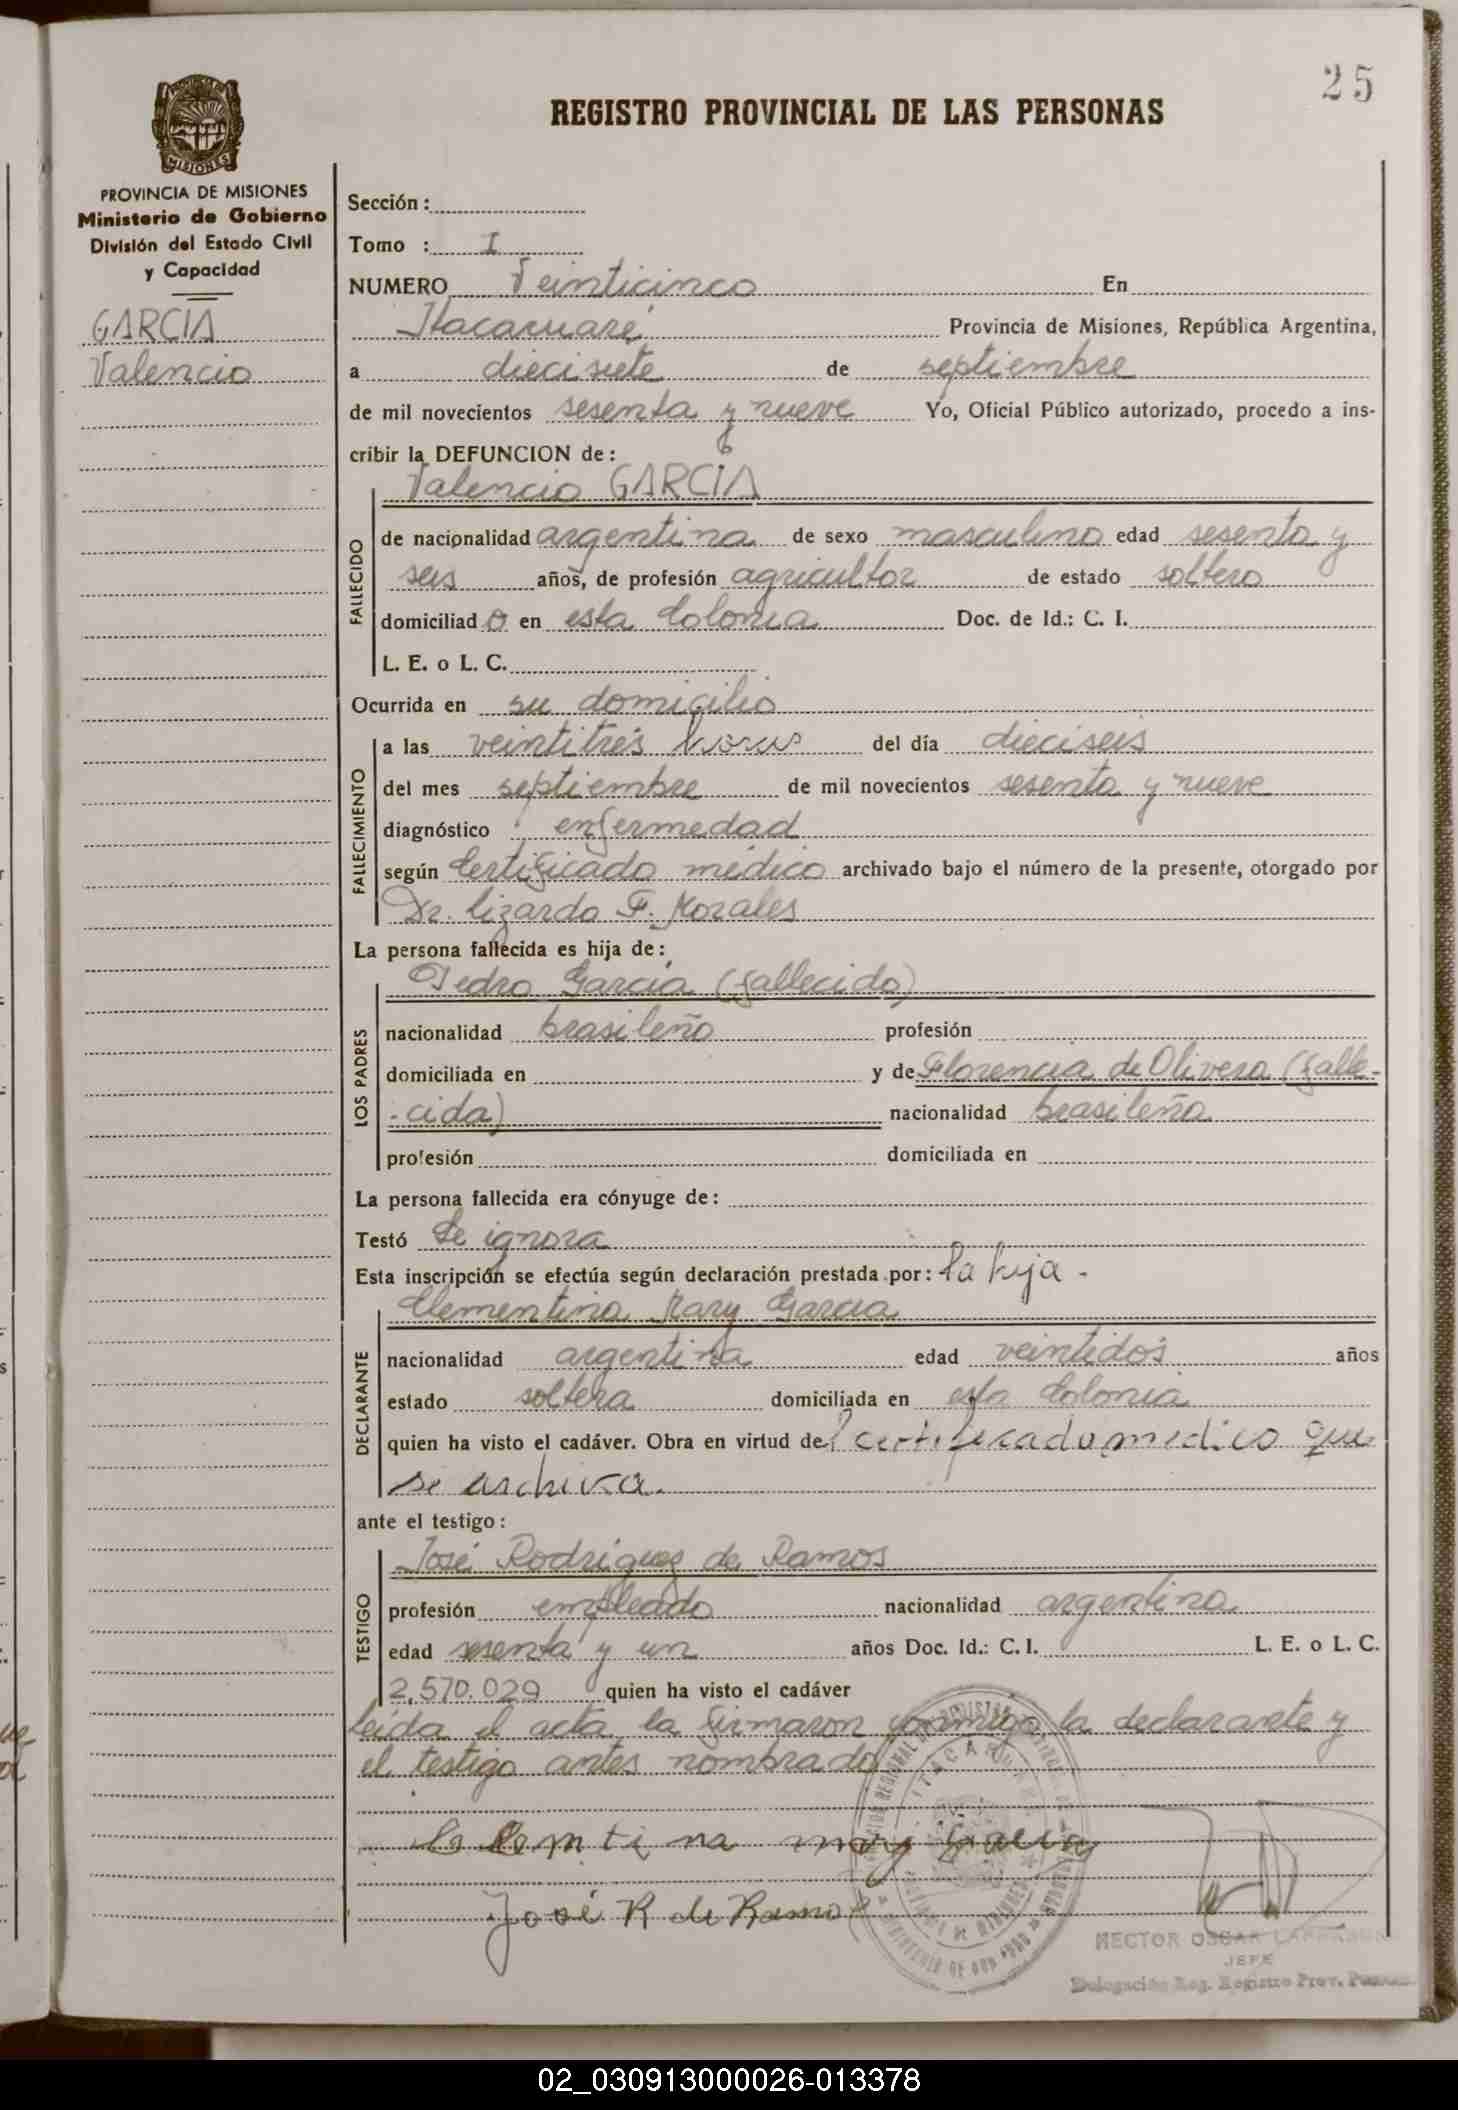 25
REGISTRO PROVINCIAL DE LAS PERSONAS
PROVINCIA DE MISIONES
Ministerio de Gobierno
División del Estado Civil
y Capacidad
GARCIA
Valencio
Sección :
Tomo : I
NUMERO Veinticinco En
Itacaruaré Provincia de Misiones, República Argentina,
a diecisiete de septiembre
de mil novecientos sesenta y nueve Yo, Oficial Público autorizado, procedo a ins-
cribir la DEFUNCION de :
Valencio GARCIA
FALLECIDO
de nacionalidad argentina de sexo masculino edad sesenta y
seis años, de profesión agricultor de estado soltero
domiciliad o en esta Colonia Doc. de Id.: C. I.
L. E. o L. C.
Ocurrida en su domicilio
FALLECIMIENTO
a las veintitrés horas del día dieciseis
del mes septiembre de mil novecientos sesenta y nueve
diagnóstico enfermedad
según Certificado médico archivado bajo el número de la presente, otorgado por
Dr. Lizardo F. Morales
La persona fallecida es hija de :
Pedro García (fallecido)
LOS PADRES
nacionalidad brasileño profesión
domiciliada en y de Florencia de Olivera (falle-
-cida) nacionalidad brasileña
profesión domiciliada en
La persona fallecida era cónyuge de :
Testó Se ignora
Esta inscripción se efectúa según declaración prestada por : la hija -
Clementina Mary Garcia
DECLARANTE
nacionalidad argentina edad veintidós años
estado soltera domiciliada en esta Colonia
quien ha visto el cadáver. Obra en virtud del certificado medico que
se archiva.
ante el testigo :
José Rodriguez de Ramos
TESTIGO
profesión empleado nacionalidad argentina
edad sesenta y un años Doc. Id.: C. I. L. E. o L. C.
2.570.029 quien ha visto el cadáver
leída el acta la firmaron conmigo la declarante y
el testigo antes nombrado
mary Garcia
José R de Ramos
HECTOR OSCAR
JEFE
Delegación Reg. Registro Prov.
02_030913000026-013378